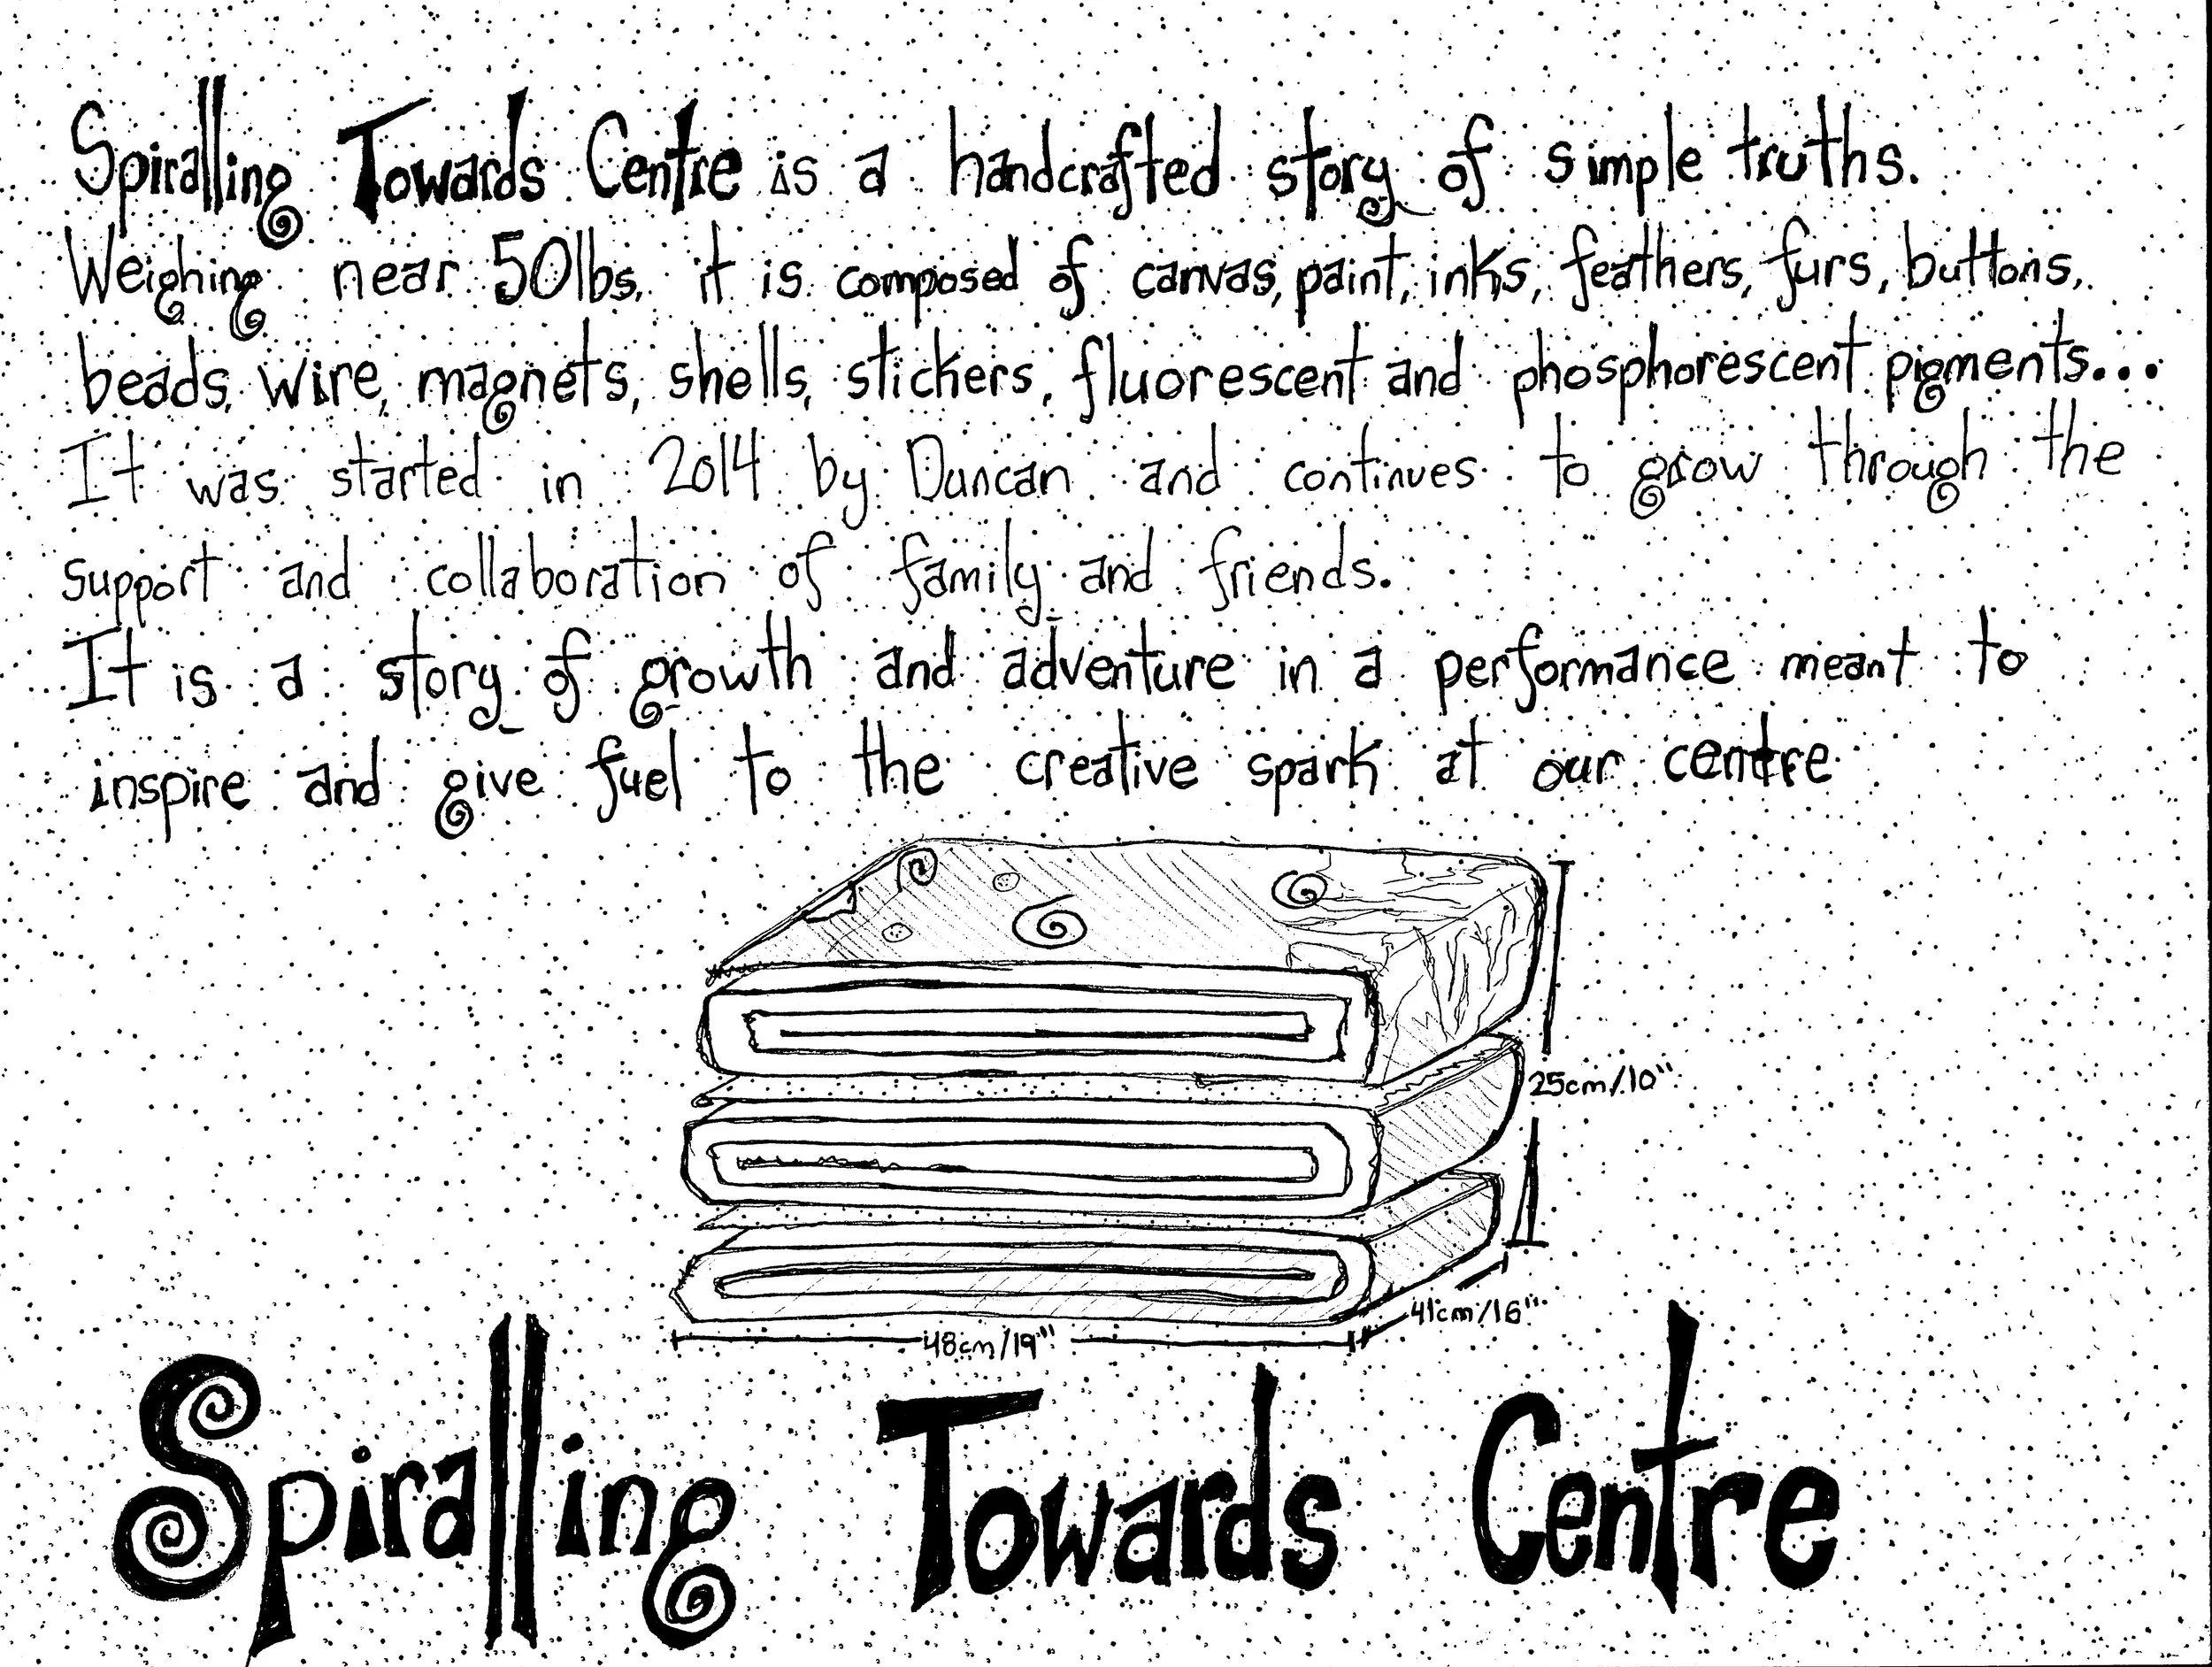 Spiralling Towards Centre is a handcrafted story of simple truths.
Weighing near 50lbs. it is composed of canvas, paint, inks, feathers, furs, buttons,
beads, wire, magnets, shells, stickers, fluorescent and phosphorescent pigments...
It was started in 2014 by Duncan and continues to grow through the
support and collaboration of family and friends.
It is a story of growth and adventure in a performance meant to
inspire and give fuel to the creative spark at our centre
25cm/10"
41cm/16"
48cm/19"
Spiralling Towards Centre